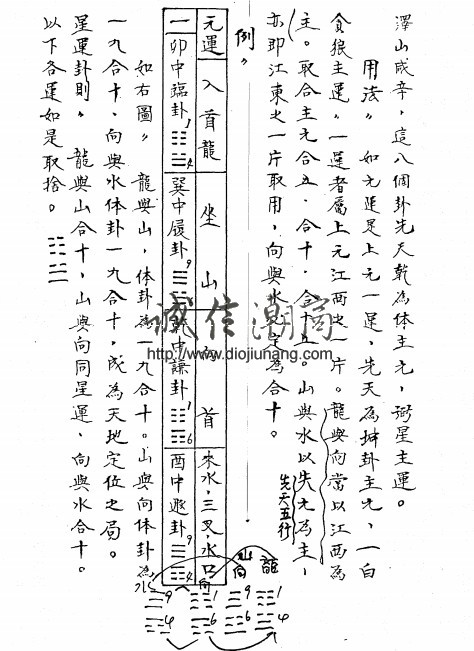 澤山咸辛，這八個卦先天乾為体主元，弼星主運。
用法〃 如元運是上元一運，先天為坤卦主元，一白
貪狼主運。一運者屬上元江西之一片。龍與向當以江西為
主。取合主元合五、合十、合十五。山與水以失元為主，
先天五行
亦即江東之一片取用，向與水定為合十。
例〃
元運 入首龍 坐山 首 來水，三叉，水口
一 卯中臨卦 1 4 巽中履卦 9 乾中謙卦 1 6 酉中遯卦 9 4
如右圖〃 龍與山，体卦為一九合十。山與向体卦為
一九合十、向與水体卦一九合十，成為天地定位之局。
星運卦則〃 龍與山合十，山與向同星運、向與水合十。
以下各運如是取捨。
龍 山 向 水
1 9 1 9
4 6 6 4
誠信潮商
http://www.diojiunang.com